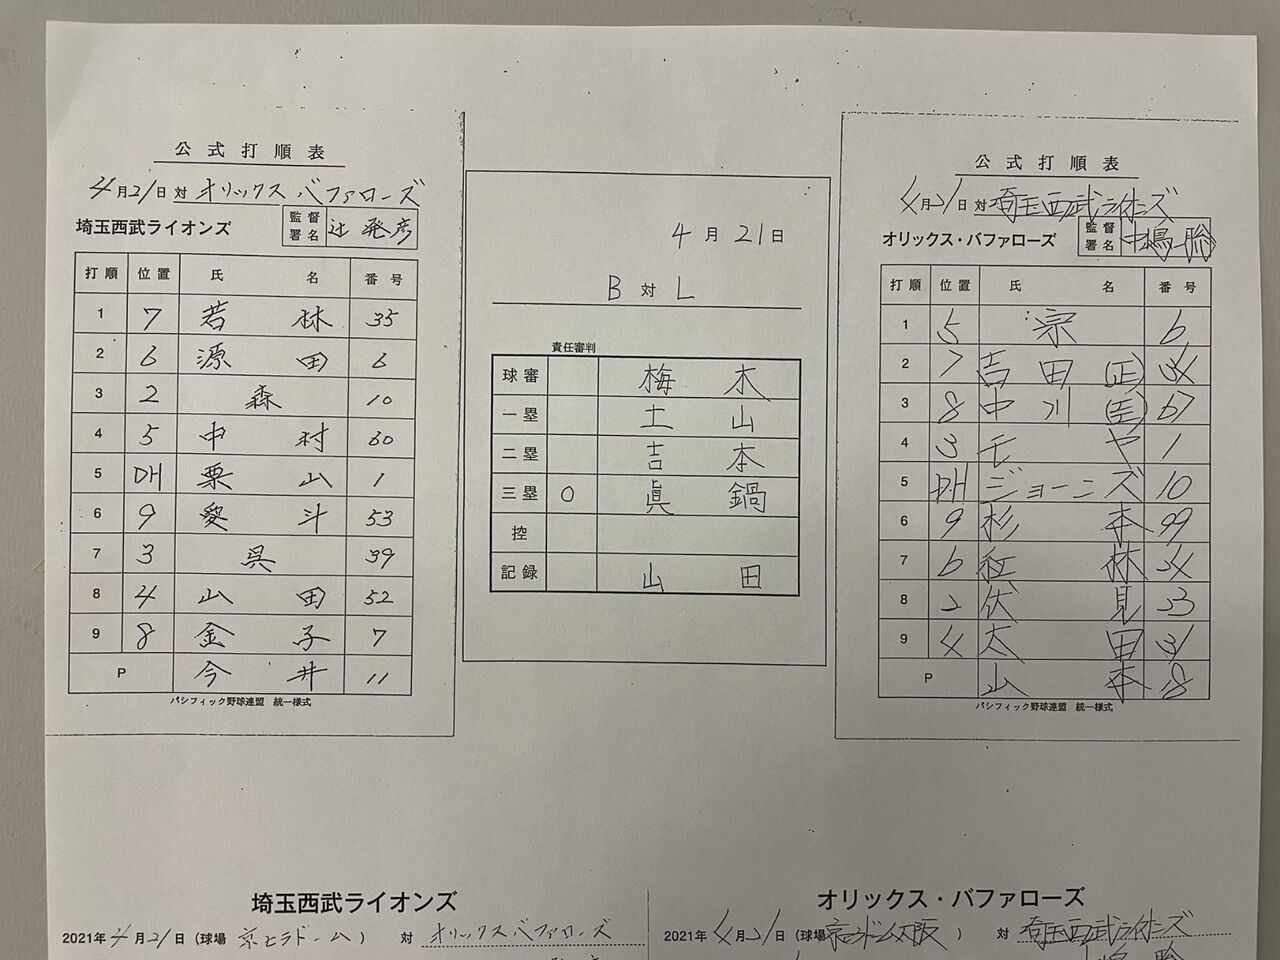 公式打順表
4月21日 対 オリックスバファローズ
埼玉西武ライオンズ 監督署名 辻 発彦
打順 位置 氏名 番号
1 7 若林 35
2 6 源田 6
3 2 森 10
4 5 中村 60
5 DH 栗山 1
6 9 愛斗 53
7 3 呉 39
8 4 山田 52
9 8 金子 7
P 今井 11
パシフィック野球連盟 統一様式
4月21日
B 対 L
責任審判
球審 梅木
一塁 土山
二塁 吉本
三塁 ○ 眞鍋
控
記録 山田
公式打順表
4月21日 対 埼玉西武ライオンズ
オリックス・バファローズ 監督署名 中嶋 聡
打順 位置 氏名 番号
1 5 宗 6
2 7 吉田(正) 34
3 8 中川(圭) 67
4 3 モヤ 1
5 DH ジョーンズ 10
6 9 杉本 99
7 6 紅林 24
8 2 伏見 23
9 4 太田 31
P 山本 18
パシフィック野球連盟 統一様式
埼玉西武ライオンズ
2021年4月21日(球場 京セラドーム) 対 オリックスバファローズ
オリックス・バファローズ
2021年4月21日(球場 京セラドーム大阪) 対 埼玉西武ライオンズ